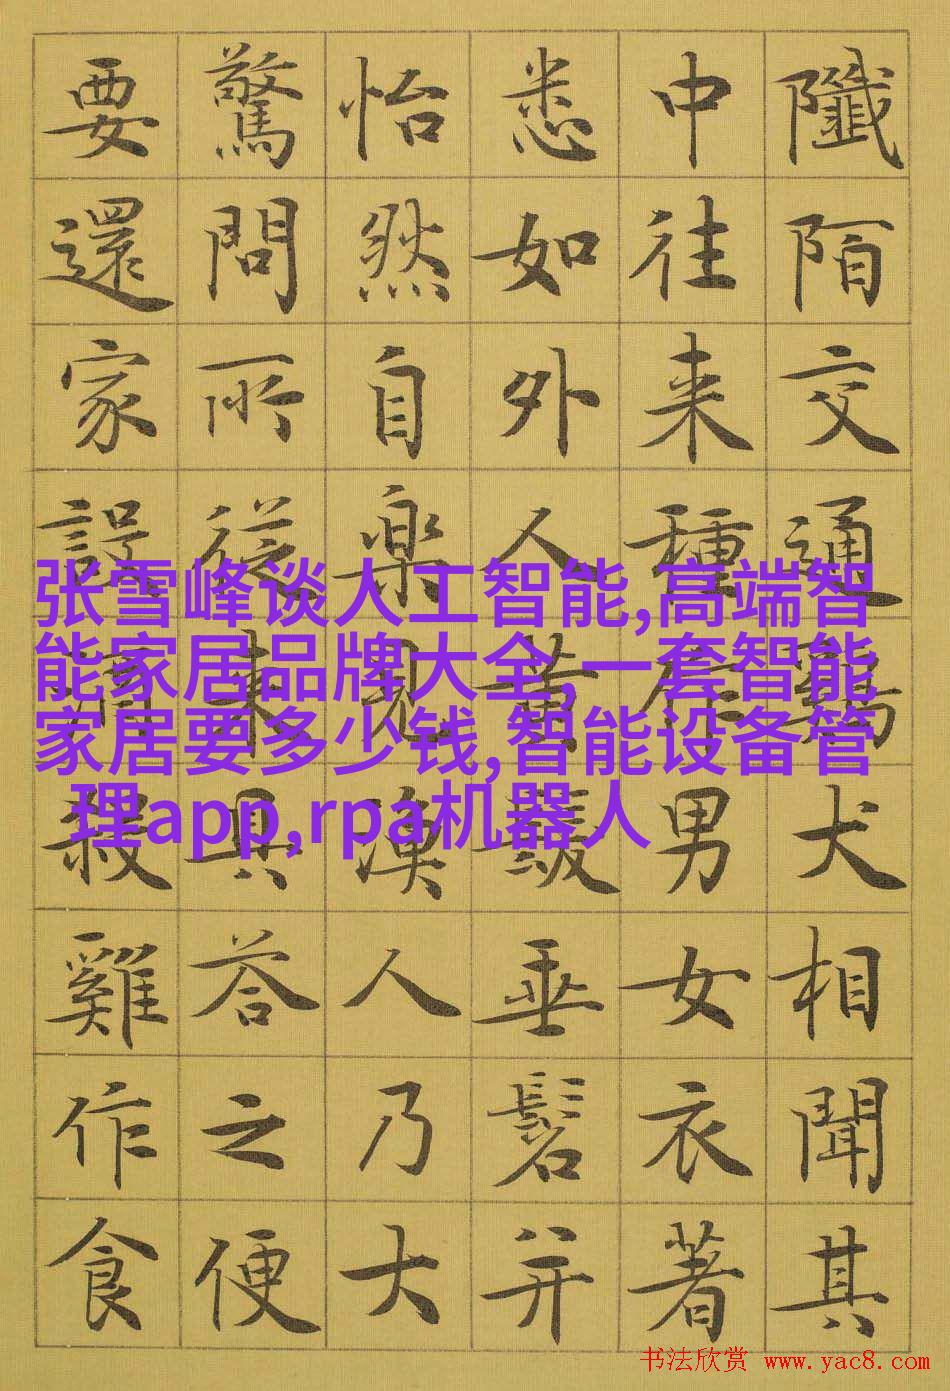 陌交通鷄犬相聞其
中往来種作男女衣著
悉如外人黄髮垂髫并
怡然自楽見漁人乃大
驚問所從來具荅之便
要還家設酒殺雞作食
张雪峰谈人工智能,高端智
能家居品牌大全,一套智能
家居要多少钱,智能设备管
理app,rpa机器人
书法欣赏 www.yac8.com